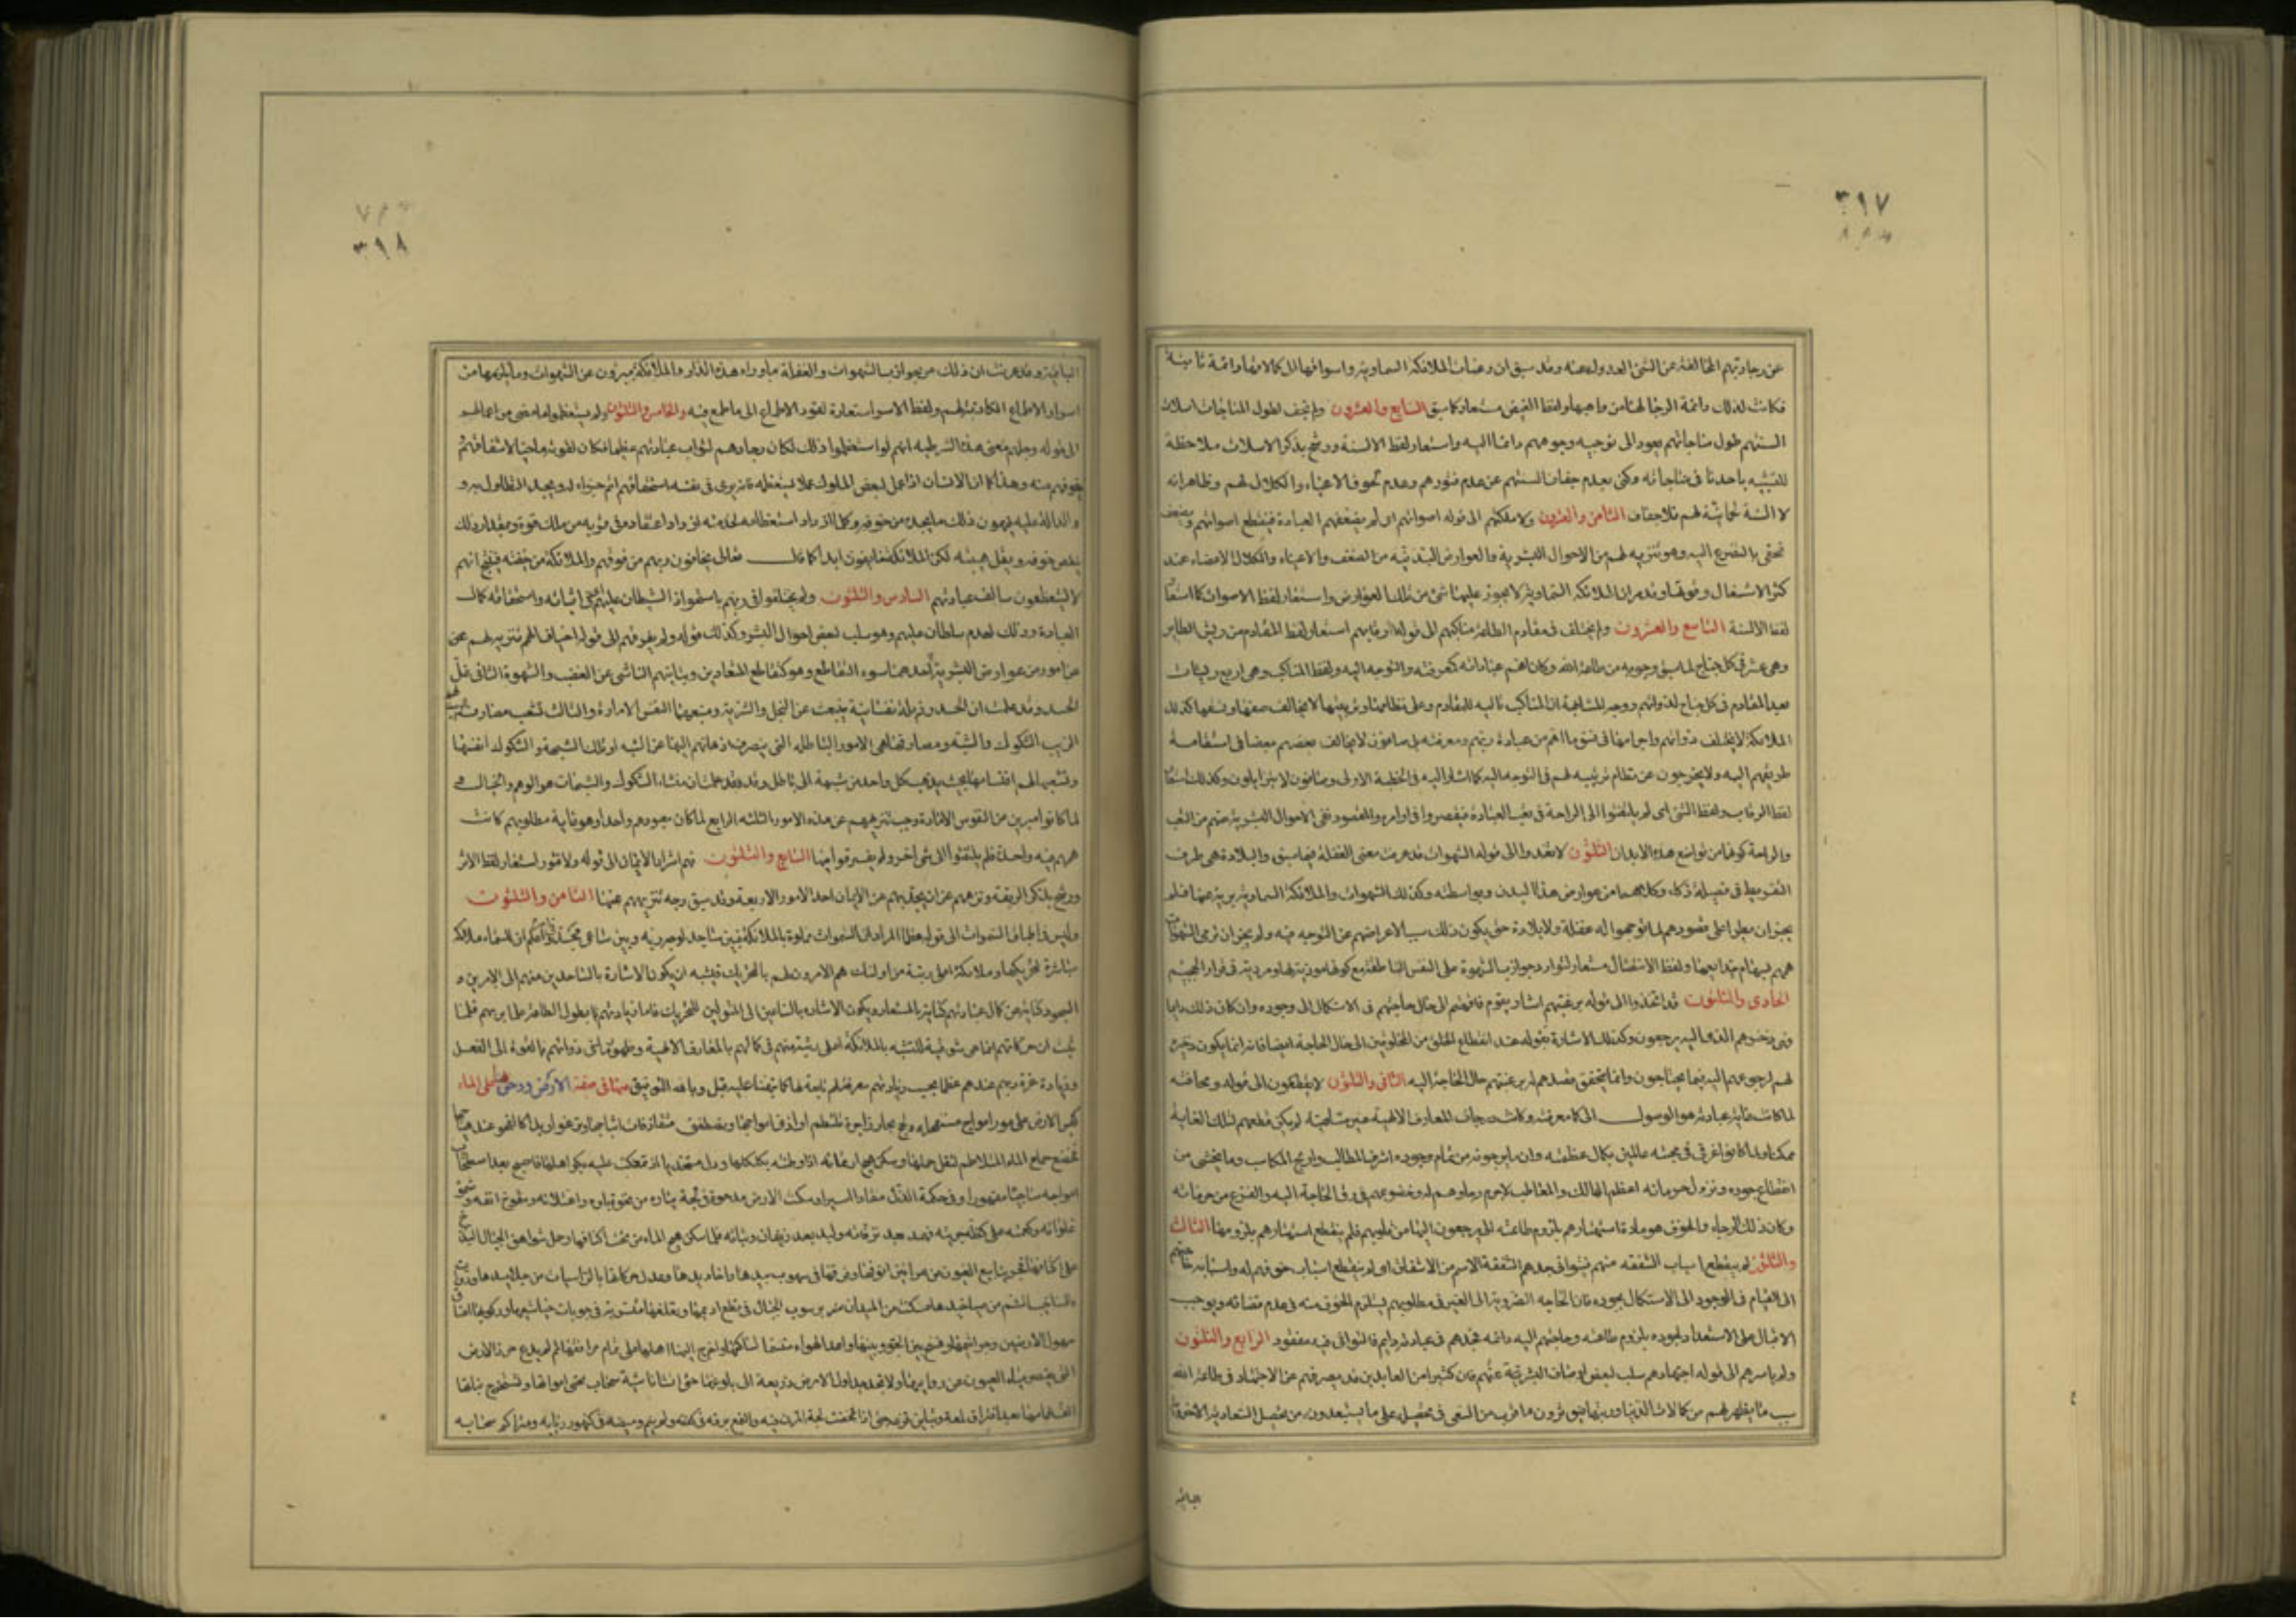 ٣٩٧
عن رجاء ربهم المخالفة عن الشئ العدول عنه وقد سبق ان رغبات الملائكة السماوية واشواقها الى كمالاتها دائمة ثابتة
فكانت لذلك دائمة الرجا لها من واهبها ولفظ الغيض مستعار كما سبق السابع والعشرون ولم تجف لطول المناجات اسلات
السنتهم طول مناجاتهم يعود الى توجيه وجوههم دائما اليه واستعار لفظ الالسنة ورشح بذكر الاسلات ملاحظة
للتشبيه باحدنا فى مناجاته وكنى بعدم جفاف السنتهم عن عدم فتورهم وعدم لحوق الاعياء والكلال لهم وظاهر انه
لا السنة لحمانية لهم فلا جفاف الثامن والعشرون ولا ملكتهم الى قوله اصواتهم اى لم يضعفهم العبادة فينقطع اصواتهم ويضعف
تخفى بالتضرع اليه وهو تنزيه لهم من الاحوال البشرية والعوارض البدنية من الضعف والاعياء والكلال الاعضاء عند
كثرة الاشتغال وقوتها وقد مر ان الملائكة السماوية لا يجوز عليها شئ من تلك العوارض واستعار لفظ الاصوات كما استعار
لفظ الالسنة التاسع والعشرون ولم يختلف فى مقاوم الطاعة مناكبهم الى قوله رقابهم استعار لفظ المقادم من ريش الطاير
وهى عشر فى كل جناح لما سبق وجوبه من طاعة الله وكان اهم عباداته كمعرفته والتوجه اليه ولفظ المناكب وهى اربع ريشات
بعد المقادم فى كل جناح لذواتهم ووجه المشابهة ان المناكب تالية للمقادم وعلى نظامها وترتيبها لا يخالف صفها ونسقها كذلك
الملائكة لا يختلف ذواتهم واجرامها فى نسق ما اهم من عبادة ربهم ومعرفته بل صافون لا يخالف بعضهم بعضا فى استقامة
طريقهم اليه ولا يخرجون عن نظام ترتيبه لهم فى التوجه اليه كما اشار اليه فى الخطبة الاولى وصافون لا يتزايلون وكذلك استعار
لفظ الرقاب ولفظ الثنى اى لم يلتفتوا الى الراحة فى تعب العبادة فيقصروا فى اوامره والمقصود نفى الاحوال البشرية عنهم من التعب
والراحة كونها من توابع هذه الابدان الثلثون لا تعدوا الى قوله الشهوات قد عرفت معنى الغفلة فيما سبق والبلادة هى طرف
التفريط فى فضيلة ذكاء وكلاهما من عوارض هذا البدن وبواسطته وكذلك الشهوات والملائكة السماوية برية عنها فلم
يجز ان يطرا على قصودهم لما توجهوا له غفلة ولا بلادة حتى يكون ذلك سببا لاعراضهم عن التوجه فيه ولم يجز ان ترمى الشهوات
هممهم بسهام خدايعها ولفظ الانتضال مستعار لنوادر جواذب الشهوة على النفس الناطقة مع كونها مؤذية لها ومردية فى قرار الجحيم
الحادى والثلثون قد اتخذوا الى قوله برغبتهم اشار بيوم فاقتهم الى حال حاجتهم فى الاستكمال الى وجوده وان كان ذلك دايما
فهى ذخرهم الذى اليه يرجعون وكذلك الاشارة بقوله عند انقطاع الخلق من المخلوقين الى حال الحاجة ايضا فانه انما يكون ذخيرة
لهم لرجوعهم اليه فيما يحتاجون وانما يتحقق قصدهم له برغبتهم حال الحاجة اليه الثانى والثلثون لا يقطعون الى قوله ومخافته
لما كانت غاية عبادته هو الوصول الى كمال معرفته وكانت درجات المعارف الالهية غير متناهية لم يكن قطعهم لتلك الغاية
ممكنا ولما كانوا غرقى فى محبته عالمين بكمال عظمته وان ما يرجونه من تمام وجوده اشرف المطالب واربح المكاسب وما يخشى من
انقطاع جوده ونزول حرمانه اعظم المهالك والمعاطب لا جرم رجاؤهم له وخضوعهم فى رق الحاجة اليه والفزع من حرمانه
وكان ذلك الرجاء والخوف هو مادة استهتارهم بلزوم طاعته التى يرجعون اليها من قلوبهم فلم ينقطع استهتارهم بلزومها الثالث
والثلثون لم ينقطع اسباب الشفقة منهم فينوا فى جدهم الشفقة الاسم من الاشفاق اى لم ينقطع اسباب خوفهم له واسبابه حاجتهم
الى القيام فى الوجود الى الاستكمال بجوده فان الحاجة الضرورية الى الغير فى مطلوبهم يستلزم الخوف منه فى عدم قضائه ويوجب
الاقبال على الاستعداد لجوده بلزوم طاعته وحاجتهم اليه دائمة فجدهم فى عبادته دايم فالتوانى فيه مفقود الرابع والثلثون
ولم ياسرهم الى قوله اجتهادهم سلب لبعض اوصاف البشرية عنهم فان كثيرا من العابدين قد يصرفهم عن الاجتهاد فى طاعة الله
سبب ما يظهر لهم من كمالات الدنيا وزينتها فيؤثرون ما قرب من السعى فى تحصيله على ما يستبعدونه من تحصيل السعادة الاخروية
الباقية
٣٩٨
الباقية وقد عرفت ان ذلك من جواذب الشهوات والغفلة ما وراء هذه الدار والملائكة مبرؤن عن الشهوات وما يلزمها من
اسر اد الاطماع الكاذبة لهم ولفظ الاسر استعارة لقود الاطماع الى ما طمع فيه والخامس والثلثون ولم يستعظموا ما مضى من اعمالهم
الى قوله وجلهم معنى هذه الشرطية انهم لو استعظموا ذلك لكان رجاؤهم لثواب عبادتهم عظيما فكان لقوته ماحيا لاشفاقهم
وخوفهم منه وهذا كما ان الانسان اذا عمل لبعض الملوك عملا يستعظمه فانه يرى فى نفسه استحقاق اتم جزاء له ويجد التطاول به و
والدالة عليه فيهون ذلك ما يجده من خوفه وكلما ازداد استعظامه لخدمته ازداد اعتقاده فى قربه من ملك قوة وبمقدار ذلك
ينقص خوفه ويقل هيبته لكن الملائكة خايفون ابدا كما قال تعالى يخافون ربهم من فوقهم والملائكة من خيفته فينتج انهم
لا يستعظمون سالف عبادتهم السادس والثلثون ولم يختلفوا فى ربهم باستحواذ الشيطان عليهم فى اثباته واستحقاقه كمال
العبادة وذلك لعدم سلطان عليهم وهو سلب لبعض احوال البشر وكذلك قوله ولم يفرقهم الى قوله اخياف الهمم تنزيه لهم عن
عن امور من عوارض البشرية احدهما سوء التقاطع وهو كتقاطع المتعادين وتباينهم الناشى عن الغضب والشهوة الثانى غل
الحسد وقد علمت ان الحسد رذيلة نفسانية ينبعث عن البخل والشره ومنبعهما النفس الامارة والثالث تشعب مصارف
الريب الشكوك والشبه ومصارفها هى الامور الباطلة التى ينصرف اذهانهم اليها عن الشبه او تلك الشبهة والشكوك انفسها
وتشعبها لهم اقتسامها بحيث يذهب كل واحد من شبهة الى باطل وقد علمت ان منشاء الشكوك والشبهات هو الوهم والخيال
لما كانوا مبرين من النفوس الامارة وجب تنزيههم عن هذه الامور الثلثة الرابع لما كان معبودهم واحدا وهو غاية مطلوبهم كانت
هممهم فيه واحدة فلم يلتفتوا الى شئ اخر ولم يفترقوا فيها السابع والثلثون فهم اسراء الايمان الى قوله ولا فتور استعار لفظ الاسر
ورشح بذكر الربقة ونزههم عن ان يجذبهم عن الايمان احد الامور الاربعة وقد سبق وجه تنزيههم عنها الثامن والثلثون
وليس فى اطباق السموات الى قوله عظما المراد ان السموات مملوة بالملائكة فبين ساجد لوجه ربه وبين ساعى مجد
مباشرة لتحريكها وملائكة اعلى رتبة من اولئك هم الآمرون لهم بالتحريك فيشبه ان يكون الاشارة بالساجدين منهم الى الامرين و
السجود كناية عن كمال عبادتهم كناية بالمستعار ويكون الاشارة بالساعين الى المتولين للتحريك فاما زيادتهم بطول الطاعة علما بربهم فلما
ثبت ان حركاتهم انما هى شوقية للتشبه بالملائكة اعلى رتبة منهم فى كمالهم بالمعارف الالهية وظهور ما فى ذواتهم بالقوة الى الفعل
وزيادة عزة ربهم عندهم عظما بحسب زيادتهم معرفته له تابعة لها كما نبهنا عليه قبل وبالله التوفيق منها فى صفة الارض ودحوها على الماء
كبس الارض على مور امواج مستفحلة ولجج بحار زاخرة تلتطم اواذى امواجها وتصطفق متقاذفات اثباجها وترغو زبدا كالفحول عند هياجها
فخضع جماح الماء المتلاطم لثقل حملها وسكن هيج ارتمائه اذ وطئته بكلكلها وذل مستخذيا اذ تمعكت عليه بكواهلها فاصبح بعد اصطخاب
امواجه ساجيا مقهورا وفى حكمة الذل منقادا اسيرا وسكنت الارض مدحوة فى لجة تياره وردت من نخوة باوه واعتلائه وشموخ انفه وسمو
غلوائه وكعمته على كظة جريته فهمد بعد نزقاته ولبد بعد زيفان وثباته فلما سكن هيج الماء من تحت اكنافها وحمل شواهق الجبال البذخ
على اكتافها فجر ينابيع العيون من عرانين انوفها وفرقها فى سهوب بيدها واخاديدها وعدل حركاتها بالراسيات من جلاميدها وذوات
الشناخيب الشم من صياخيدها فسكنت من الميدان برسوب الجبال فى قطع اديمها وتغلغلها متسربة فى جوبات خياشيمها وركوبها اعناق
سهول الارضين وجراثيمها وفسح بين الجو وبينها واعد الهواء متنسما لساكنها واخرج اليها اهلها على تمام مرافقها ثم لم يدع جرز الارض
التى يقصر مياه العيون عن روابيها ولا تجد جداول الارض ذريعة الى بلوغها حتى انشا ناشية سحاب يحيى مواتها ويستخرج نباتها
الف غمامها بعد افتراق لمعه وتباين قزعه حتى اذا تمخضت لجة المزن فيه والتمع برقه فى كففه ولم ينم وميضه فى كنهور ربابه ومتراكم سحابه